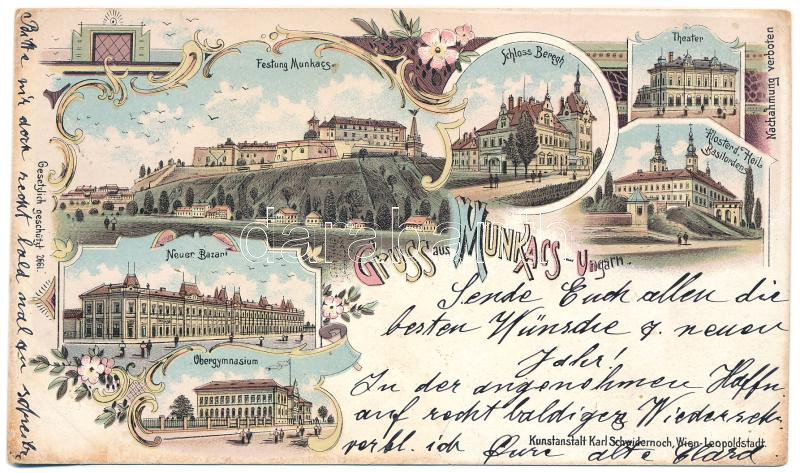 Festung Munkács
Schloss Beregh
Theater
Nachahmung verboten
Kloster d. Heil.
Basilordens
Neuer Bazar!
Obergymnasium
Gesetzlich geschützt 2661.
Gruss aus Munkacs - Ungarn.
darabanth
Sende Euch allen die
besten Wünsche z. neuen
Jahr!
In der angenehmen Hoffn
auf recht baldiges Wiederseh
verbl. ich Eure alte
Kunstanstalt Karl Schwidernoch, Wien-Leopoldstadt.
Bitte mir doch recht bald mal zu schreiben